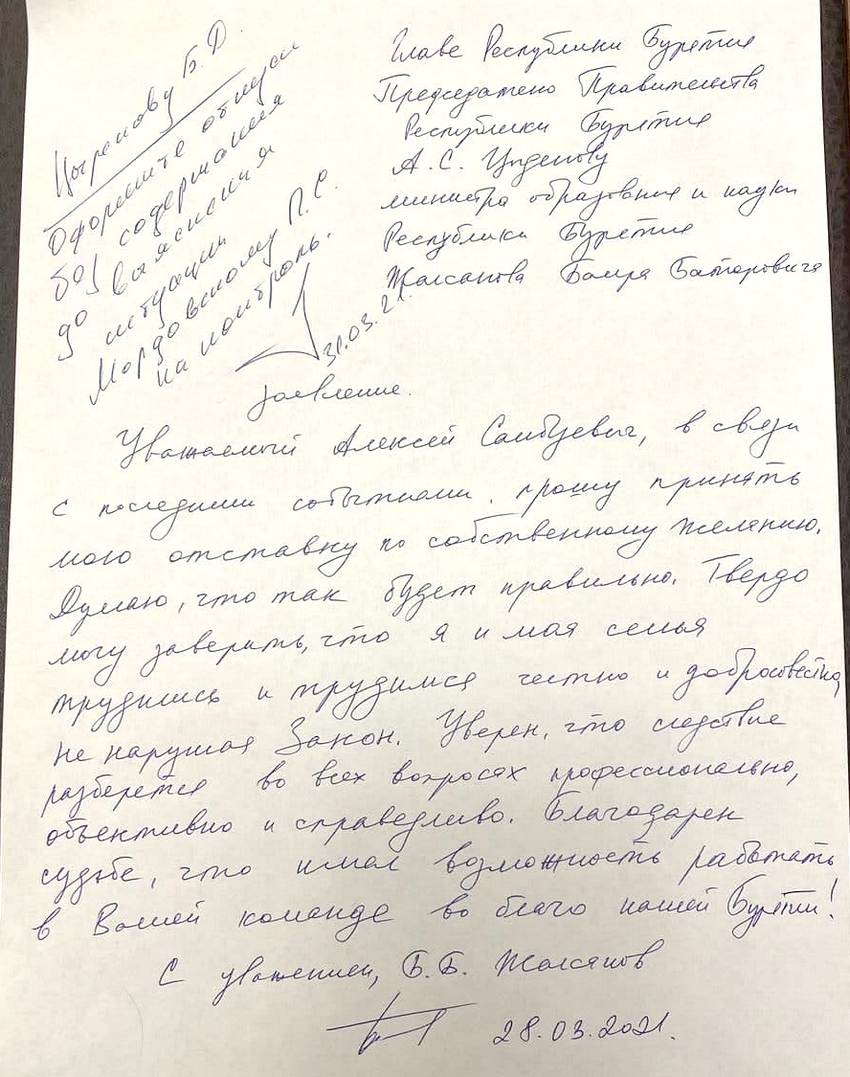 Цыренову Б.Д.
Оформите отпуск
без содержания
до выяснения
ситуации
Мордовскому П.С.
на контроль.
31.03.21.
Главе Республики Бурятия
Председателю Правительства
Республики Бурятия
А.С. Цыденову
министра образования и науки
Республики Бурятия
Жалсанова Баира Батаровича
заявление.
Уважаемый Алексей Самбуевич, в связи
с последними событиями прошу принять
мою отставку по собственному желанию.
Думаю, что так будет правильно. Твердо
могу заверить, что я и моя семья
трудились и трудимся честно и добросовестно,
не нарушая Закон. Уверен, что следствие
разберется во всех вопросах профессионально,
объективно и справедливо. Благодарен
судьбе, что имел возможность работать
в Вашей команде во благо нашей Бурятии!
С уважением, Б.Б. Жалсанов
28.03.2021.